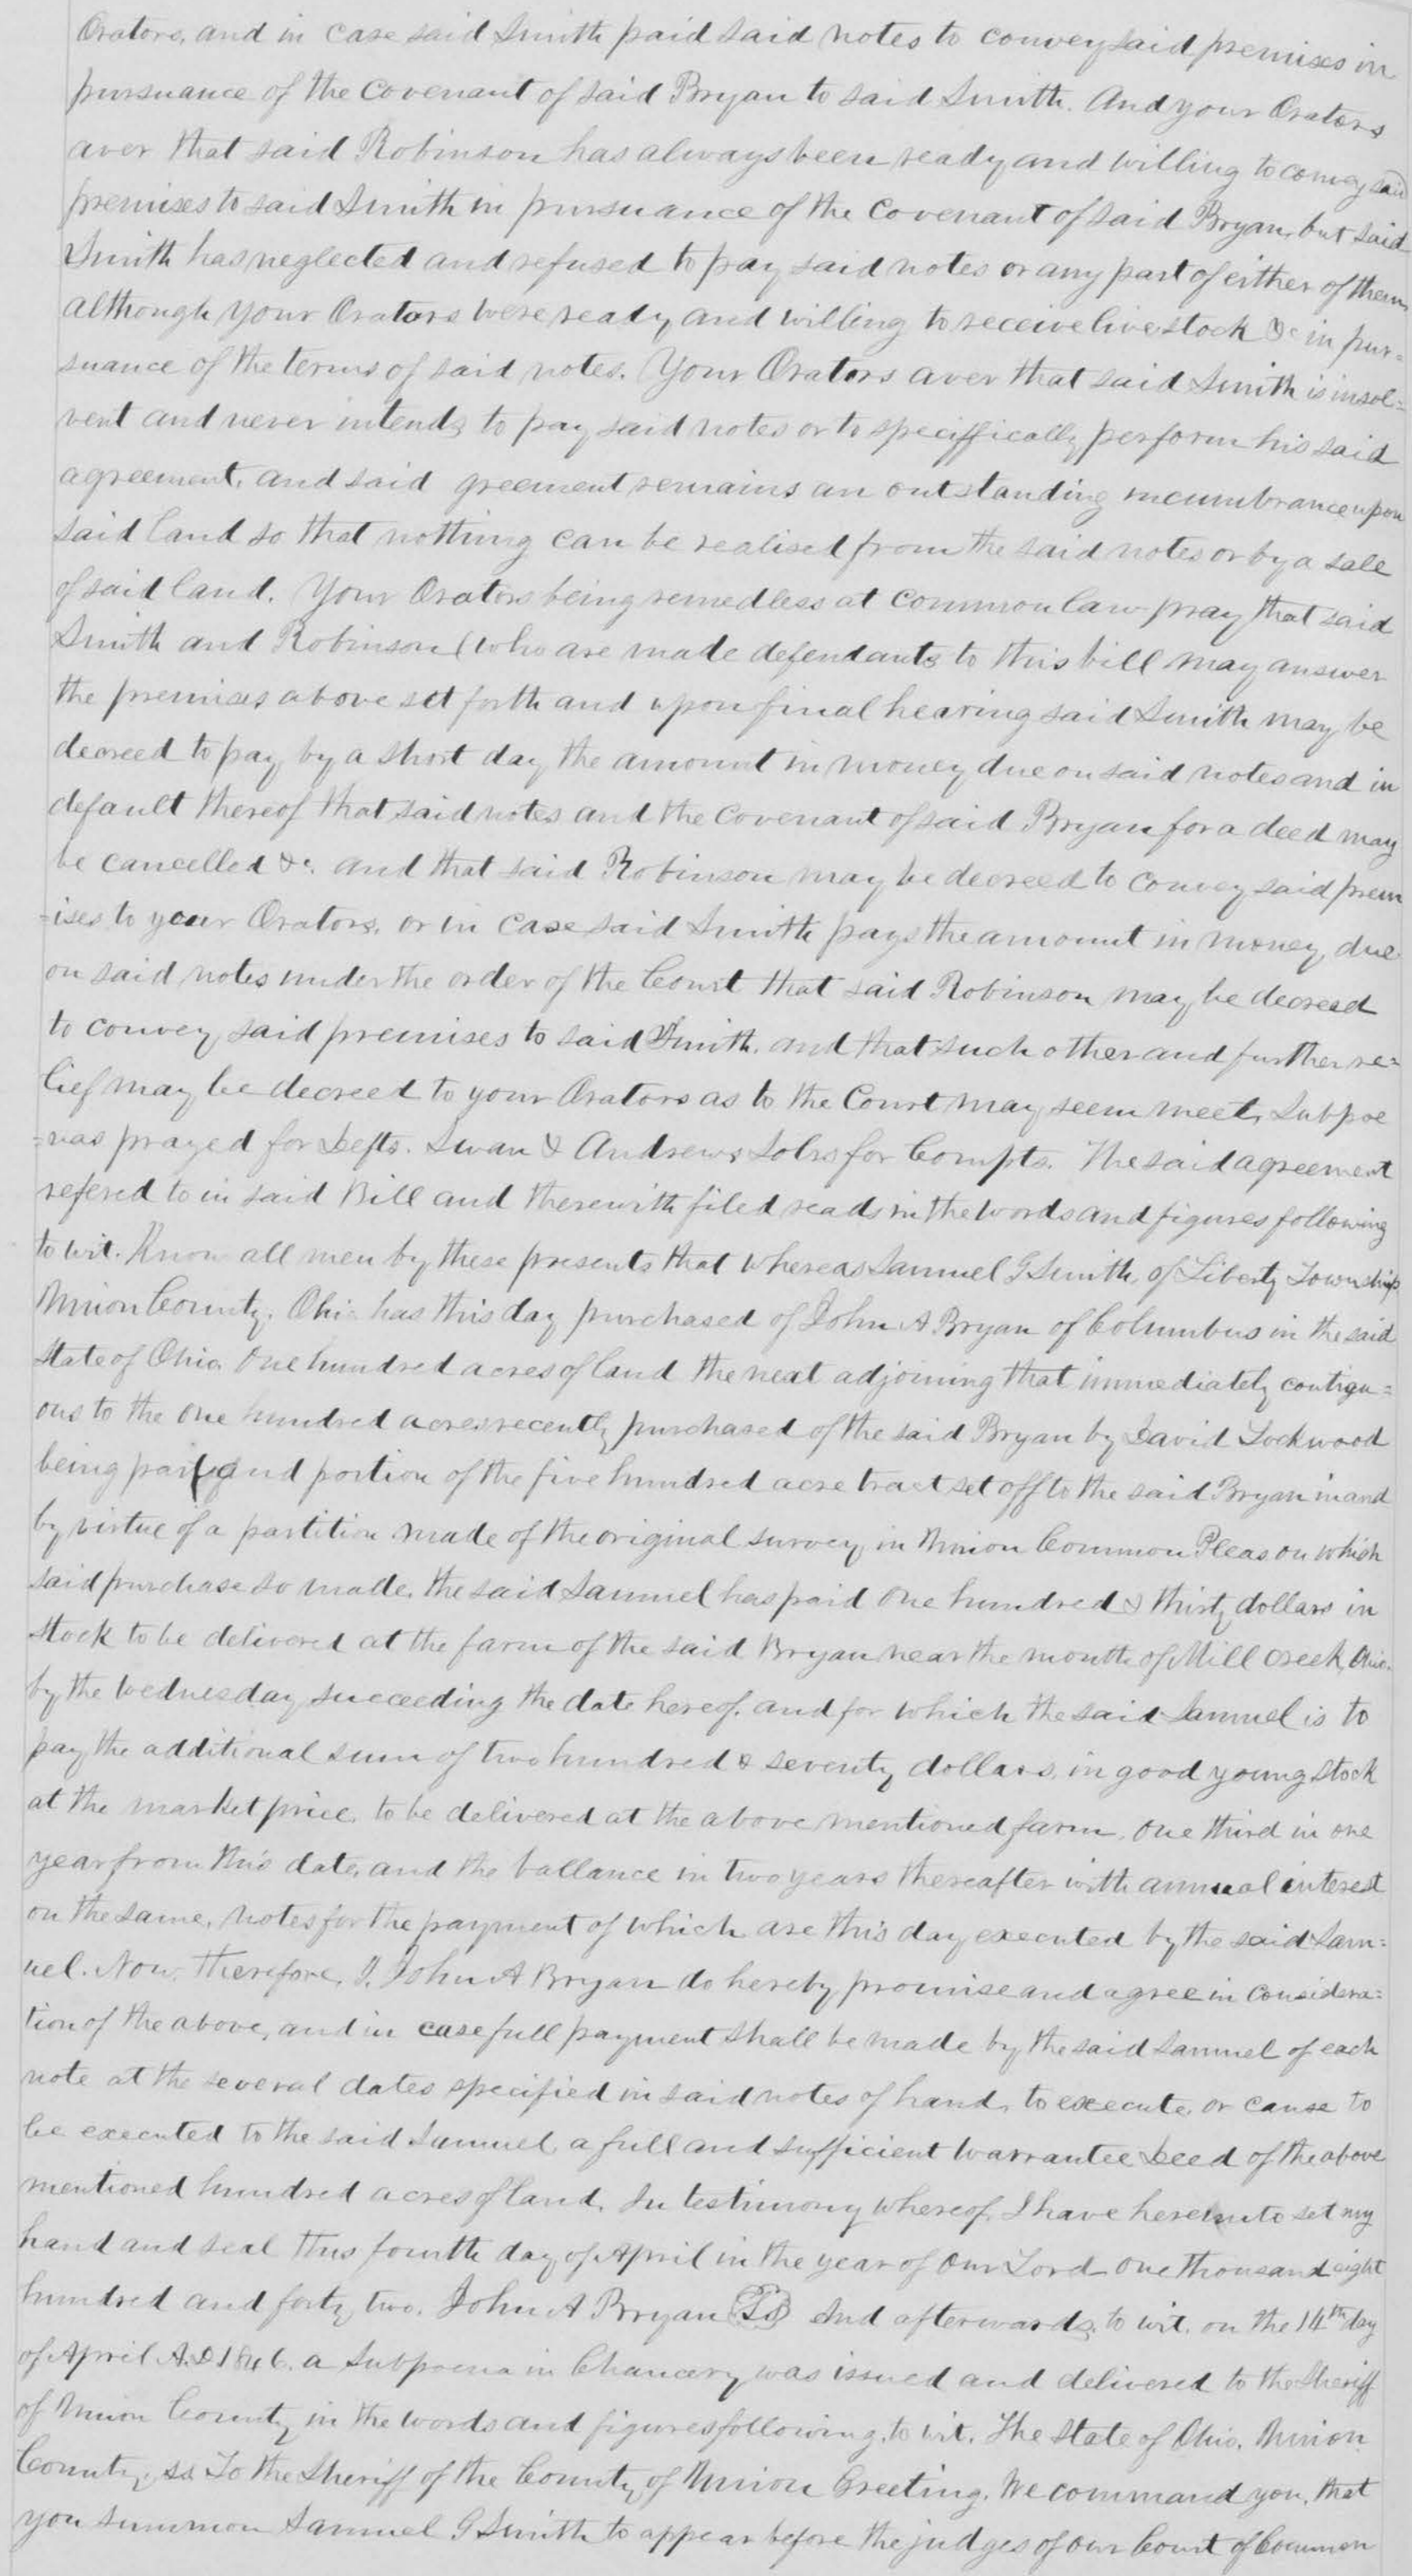 Orators, and in case said Smith paid said notes to convey said premises in
pursuance of the covenant of said Bryan to said Smith. And your Orators
aver that said Robinson has always been ready and willing to convey said
premises to said Smith in pursuance of the covenant of said Bryan, but said
Smith has neglected and refused to pay said notes or any part of either of them
although your Orators were ready and willing to receive live stock &c in pur=
suance of the terms of said notes. Your Orators aver that said Smith is insol=
vent and never intends to pay said notes or to speciffically perform his said
agreement, and said greement remains an outstanding incumbrance upon
said land so that nothing can be realised from the said notes or by a sale
of said land. Your Orators being remedless at common law pray that said
Smith and Robinson (who are made defendants to this bill may answer
the premises above set forth and upon final hearing said Smith may be
decreed to pay by a short day the amount in money due on said notes and in
default thereof that said notes and the covenant of said Bryan for a deed may
be cancelled &c. and that said Robinson may be decreed to convey said prem
=ises to your Orators, or in case said Smith pays the amount in money due
on said notes under the order of the Court that said Robinson may be decreed
to convey said premises to said Smith. and that such other and further re=
lief may be decreed to your Orators as to the Court may seem meet, Subpoe
=nas prayed for Defts. Swan & Andrews Solrs for Compts. The said agreement
refered to in said Bill and therewith filed reads in the words and figures following
to wit. Know all men by these presents that whereas Samuel G Smith, of Liberty Township
Union County, Ohio has this day purchased of John A Bryan of Columbus in the said
State of Ohio one hundred acres of land the next adjoining that immediately contigu=
ous to the one hundred acres recently purchased of the said Bryan by David Lockwood
being part and portion of the five hundred acre tract set off to the said Bryan in and
by virtue of a partition made of the original survey in Union Common Pleas on which
said purchase so made, the said Samuel has paid one hundred & thirty dollars in
stock to be delivered at the farm of the said Bryan near the mouth of Mill Creek, Ohio.
by the Wednesday succeeding the date hereof. and for which the said Samuel is to
pay the additional sum of two hundred & seventy dollars, in good young stock
at the market price to be delivered at the above mentioned farm, one third in one
year from this date, and the ballance in two years thereafter with annual interest
on the same, notes for the payment of which are this day executed by the said Sam=
uel. Now, therefore, I, John A Bryan do hereby promise and agree in considera=
tion of the above, and in case full payment shall be made by the said Samuel of each
note at the several dates specified in said notes of hand, to execute or cause to
be executed to the said Samuel a full and sufficient warrantee Deed of the above
mentioned hundred acres of land. In testimony whereof, I have hereunto set my
hand and seal this fourth day of April in the year of our Lord one thousand eight
hundred and forty two. John A Bryan And afterwards, to wit, on the 14th day
of April A.D. 1846. a Subpoena in Chancery was issued and delivered to the Sheriff
of Union County in the words and figures following, to wit. The State of Ohio, Union
County, ss. To the Sheriff of the County of Union Greeting. We command you, that
you summon Samuel G Smith to appear before the judges of our Court of Common